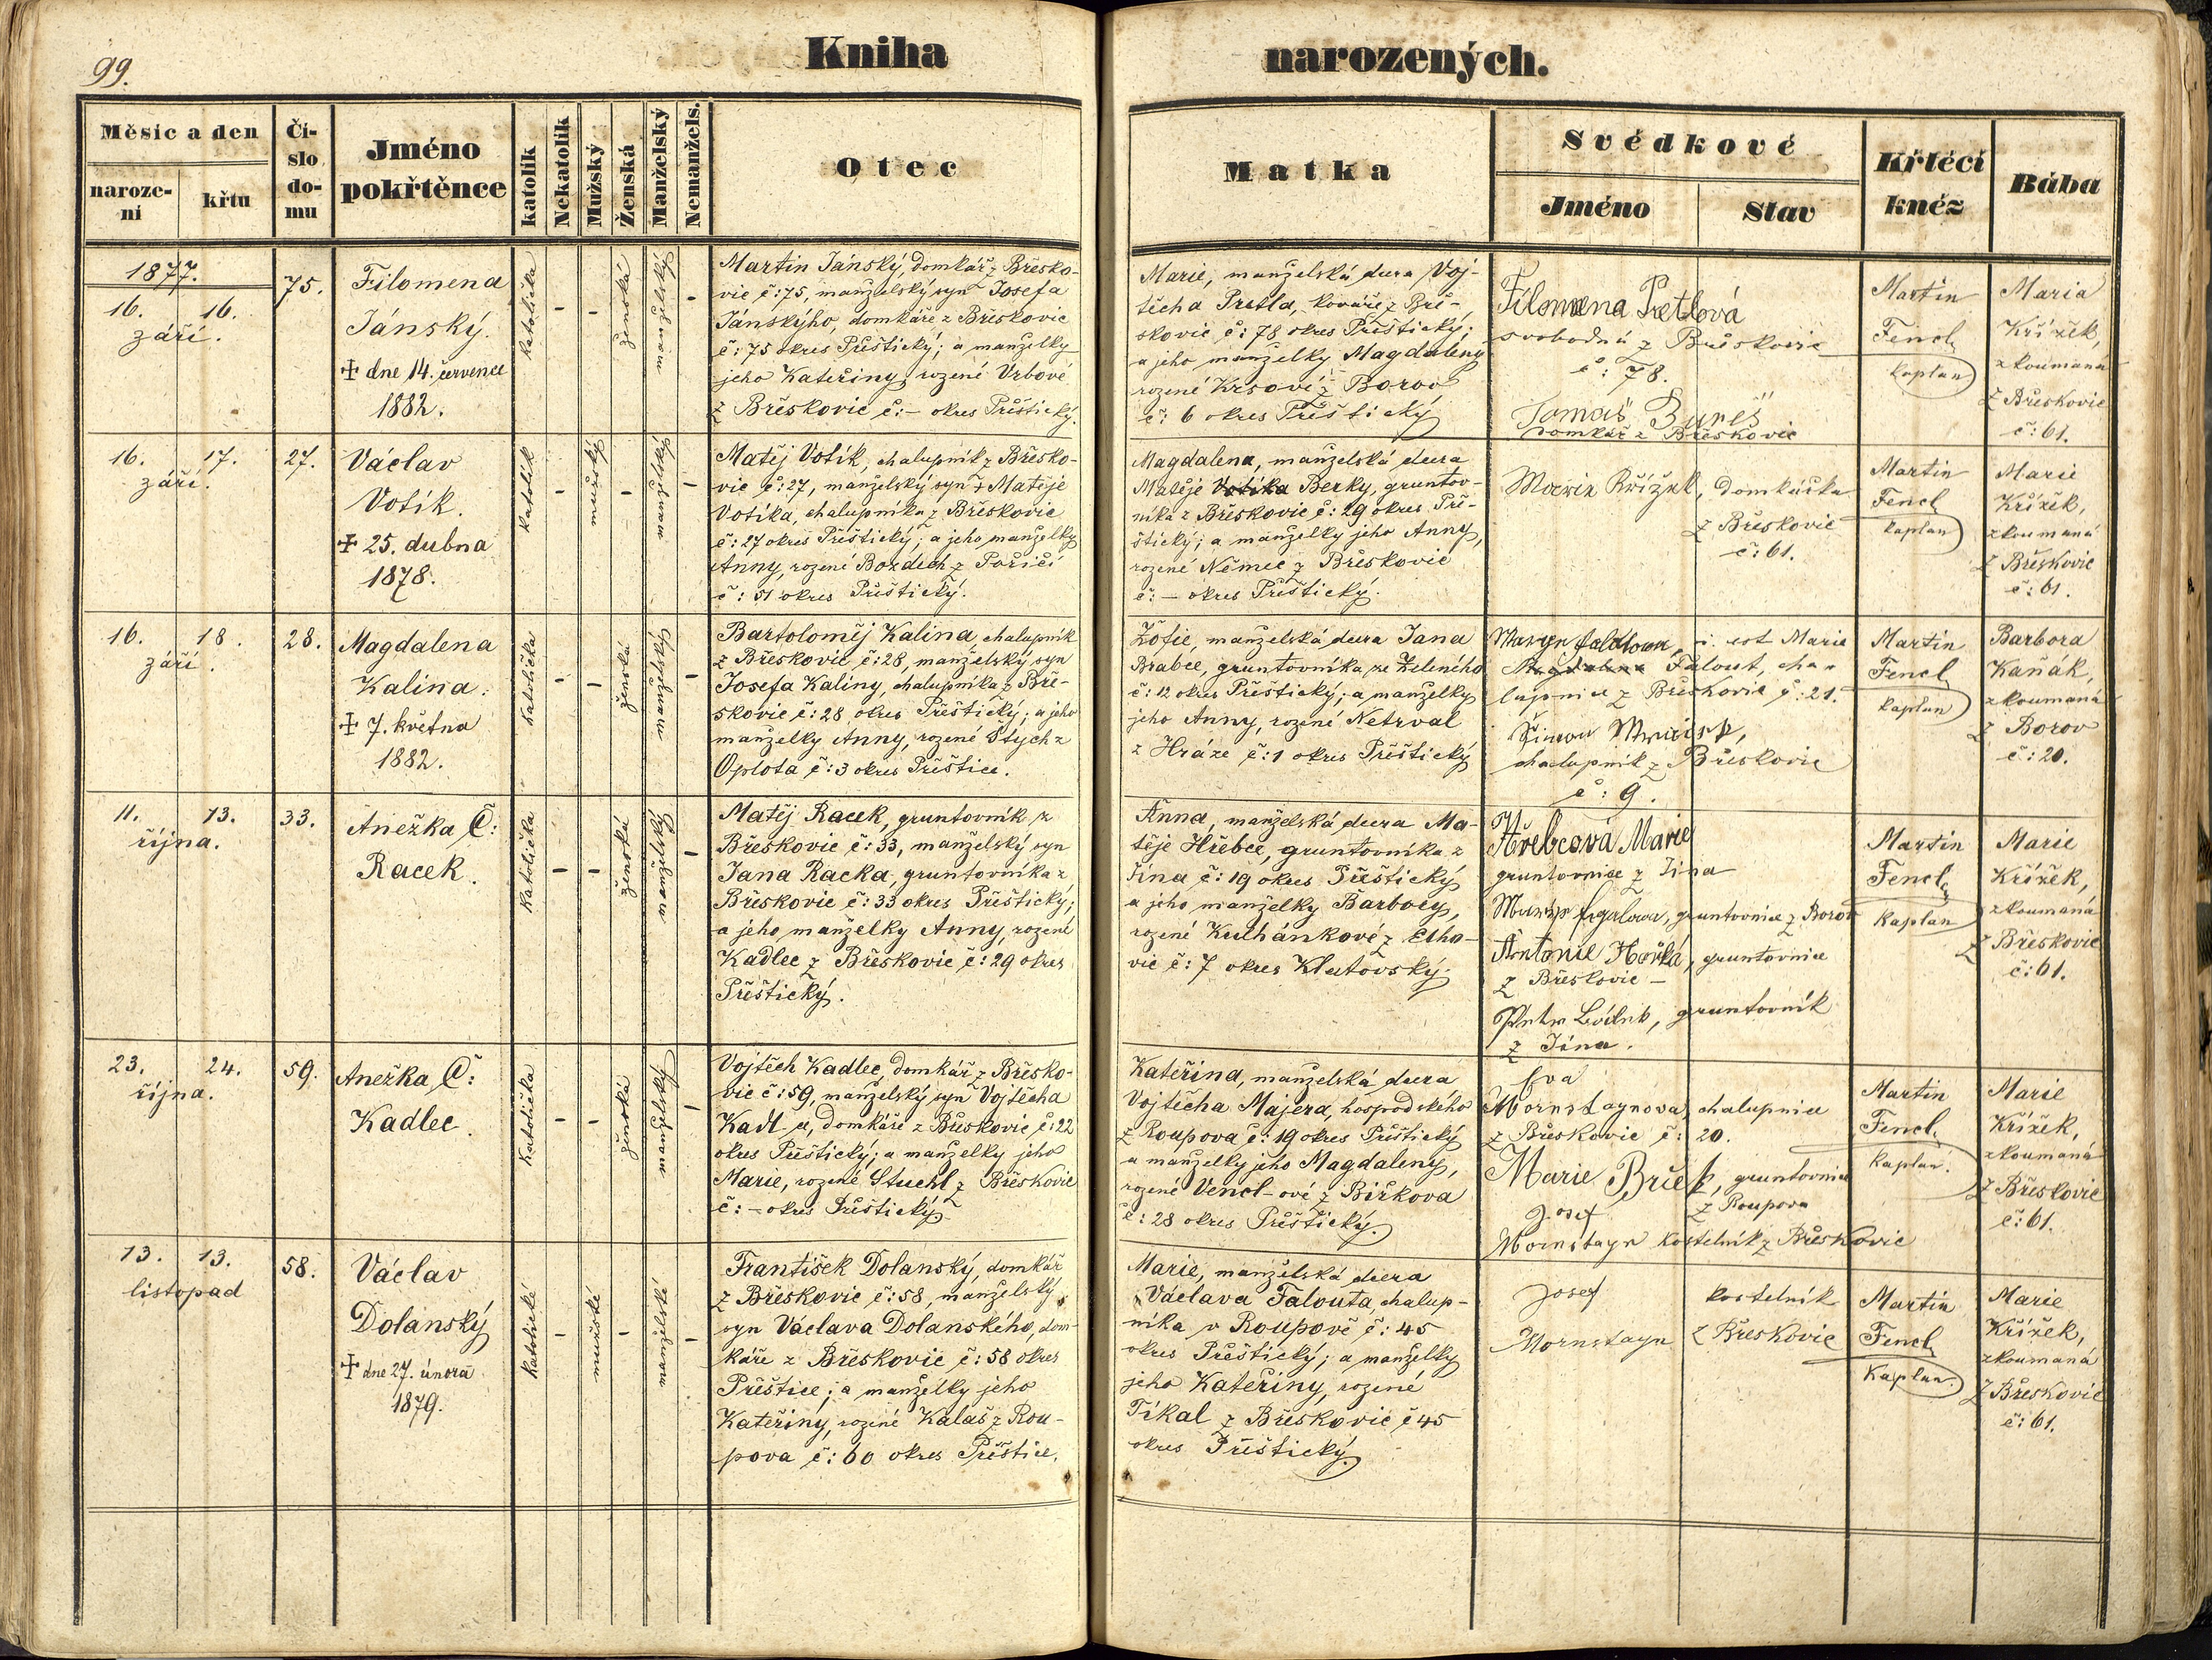 99.
Kniha narozených.
Měsíc a den
naroze-
ní
křtu
Čí-
slo
do-
mu
Jméno
pokřtěnce
katolík
Nekatolík
Mužský
Ženská
Manželský
Nemanžels.
Otec
Matka
Svědkové
Jméno
Stav
Křtící
kněz
Bába
1877.
16. 16.
září.
75.
Filomena
Jánský.
✝ dne 14. července
1882.
katolička
-
-
ženská
manželský
-
Martin Jánský, domkář z Břesko-
vic č: 75, manželský syn Josefa
Jánskýho, domkáře z Břeskovic
č: 75 okres Přeštický; a manželky
jeho Kateřiny, rozené Vrbové
z Břeskovic č: - okres Přeštický.
Marie, manželská dcera Voj-
těcha Pretla, kováře z Bře-
skovic č: 78 okres Přeštický;
a jeho manželky Magdaleny
rozené Krsové z Borov
č: 6 okres Přeštický
Filomena Pretlová
svobodná z Břeskovic
č: 78.
Tomáš Bureš
domkář z Břeskovic
Martin
Fencl
kaplan
Maria
Křížek,
zkoumaná
z Břeskovic
č: 61.
16. 17.
září.
27.
Václav
Votík.
✝ 25. dubna
1878.
katolík
-
mužský
-
manželský
-
Matěj Votík, chalupník z Břesko-
vic č: 27, manželský syn ✝ Matěje
Votíka, chalupníka z Břeskovic
č: 27 okres Přeštický; a jeho manželky
Anny, rozené Bozděch z Poříčí
č: 51 okres Přeštický.
Magdalena, manželská dcera
Matěje Votíka Berky, gruntov-
níka z Břeskovic č: 29 okres Pře-
štický; a manželky jeho Anny,
rozené Němec z Břeskovic
č: - okres Přeštický.
Marie Křížek, domkářka
z Břeskovic
č: 61.
Martin
Fencl
kaplan
Marie
Křížek,
zkoumaná
z Břeskovic
č: 61.
16. 18.
září.
28.
Magdalena
Kalina.
✝ 7. května
1882.
katolička
-
-
ženská
manželský
-
Bartoloměj Kalina, chalupník
z Břeskovic č: 28, manželský syn
Josefa Kaliny, chalupníka z Bře-
skovic č: 28 okres Přeštický; a jeho
manželky Anny, rozené Štych z
Oplota č: 3 okres Přeštice.
Žofie, manželská dcera Jana
Brabce, gruntovníka ze Zeleného
č: 12 okres Přeštický; a manželky
jeho Anny, rozené Netrval
z Hráze č: 1 okres Přeštický
i. est Marie
Magdalena Falout, cha-
lupnice z Břeskovic č: 21.
Šimon
chalupník z Břeskovic
č: 9.
Martin
Fencl
kaplan
Barbora
Kaňák,
zkoumaná
z Borov
č: 20.
11. 13.
října.
33.
Anežka C:
Racek.
katolička
-
-
ženská
manželský
-
Matěj Racek, gruntovník z
Břeskovic č: 33, manželský syn
Jana Racka, gruntovníka z
Břeskovic č: 33 okres Přeštický;
a jeho manželky Anny, rozené
Kadlec z Břeskovic č: 29 okres
Přeštický.
Anna, manželská dcera Ma-
těje Hřebce, gruntovníka z
Jína č: 19 okres Přeštický
a jeho manželky Barbory,
rozené Kulhánkové z Elho-
vic č: 7 okres Klatovský.
Hřebcová Marie
gruntovnice z Jína
gruntovnice z Borov
Antonie Horká, gruntovnice
z Břeskovic -
gruntovník
z Jína.
Martin
Fencl
kaplan
Marie
Křížek,
zkoumaná
z Břeskovic
č: 61.
23. 24.
října.
59.
Anežka C:
Kadlec.
katolička
-
-
ženská
manželský
-
Vojtěch Kadlec, domkář z Břesko-
vic č: 59, manželský syn Vojtěcha
Kadl-e, domkáře z Břeskovic č: 22
okres Přeštický; a manželky jeho
Marie, rozené Stuchl z Břeskovic
č: - okres Přeštický.
Kateřina, manželská dcera
Vojtěcha Majera, hospodského
z Roupova č: 19 okres Přeštický
a manželky jeho Magdaleny,
rozené Vencl-ové z Biřkova
č: 28 okres Přeštický.
Eva
Mornstaynova, chalupnice
z Břeskovic č: 20.
Marie Bříck, gruntovnice
z Roupova
Josef
Mornstayn kostelník z Břeskovic
Martin
Fencl
kaplan.
Marie
Křížek,
zkoumaná
z Břeskovic
č: 61.
13. 13.
listopad
58.
Václav
Dolanský
✝ dne 27. února
1879.
katolické
-
mužské
-
manželský
-
František Dolanský, domkář
z Břeskovic č: 58, manželský
syn Václava Dolanského, dom-
káře z Břeskovic č: 58 okres
Přeštice; a manželky jeho
Kateřiny, rozené Kalaš z Rou-
pova č: 60 okres Přeštice.
Marie, manželská dcera
Václava Falouta, chalup-
níka v Roupově č: 45
okres Přeštický; a manželky
jeho Kateřiny, rozené
Tíkal z Břeskovic č 45
okres Přeštický.
Josef kostelník
Mornstayn z Břeskovic
Martin
Fencl
kaplan.
Marie
Křížek,
zkoumaná
z Břeskovic
č: 61.